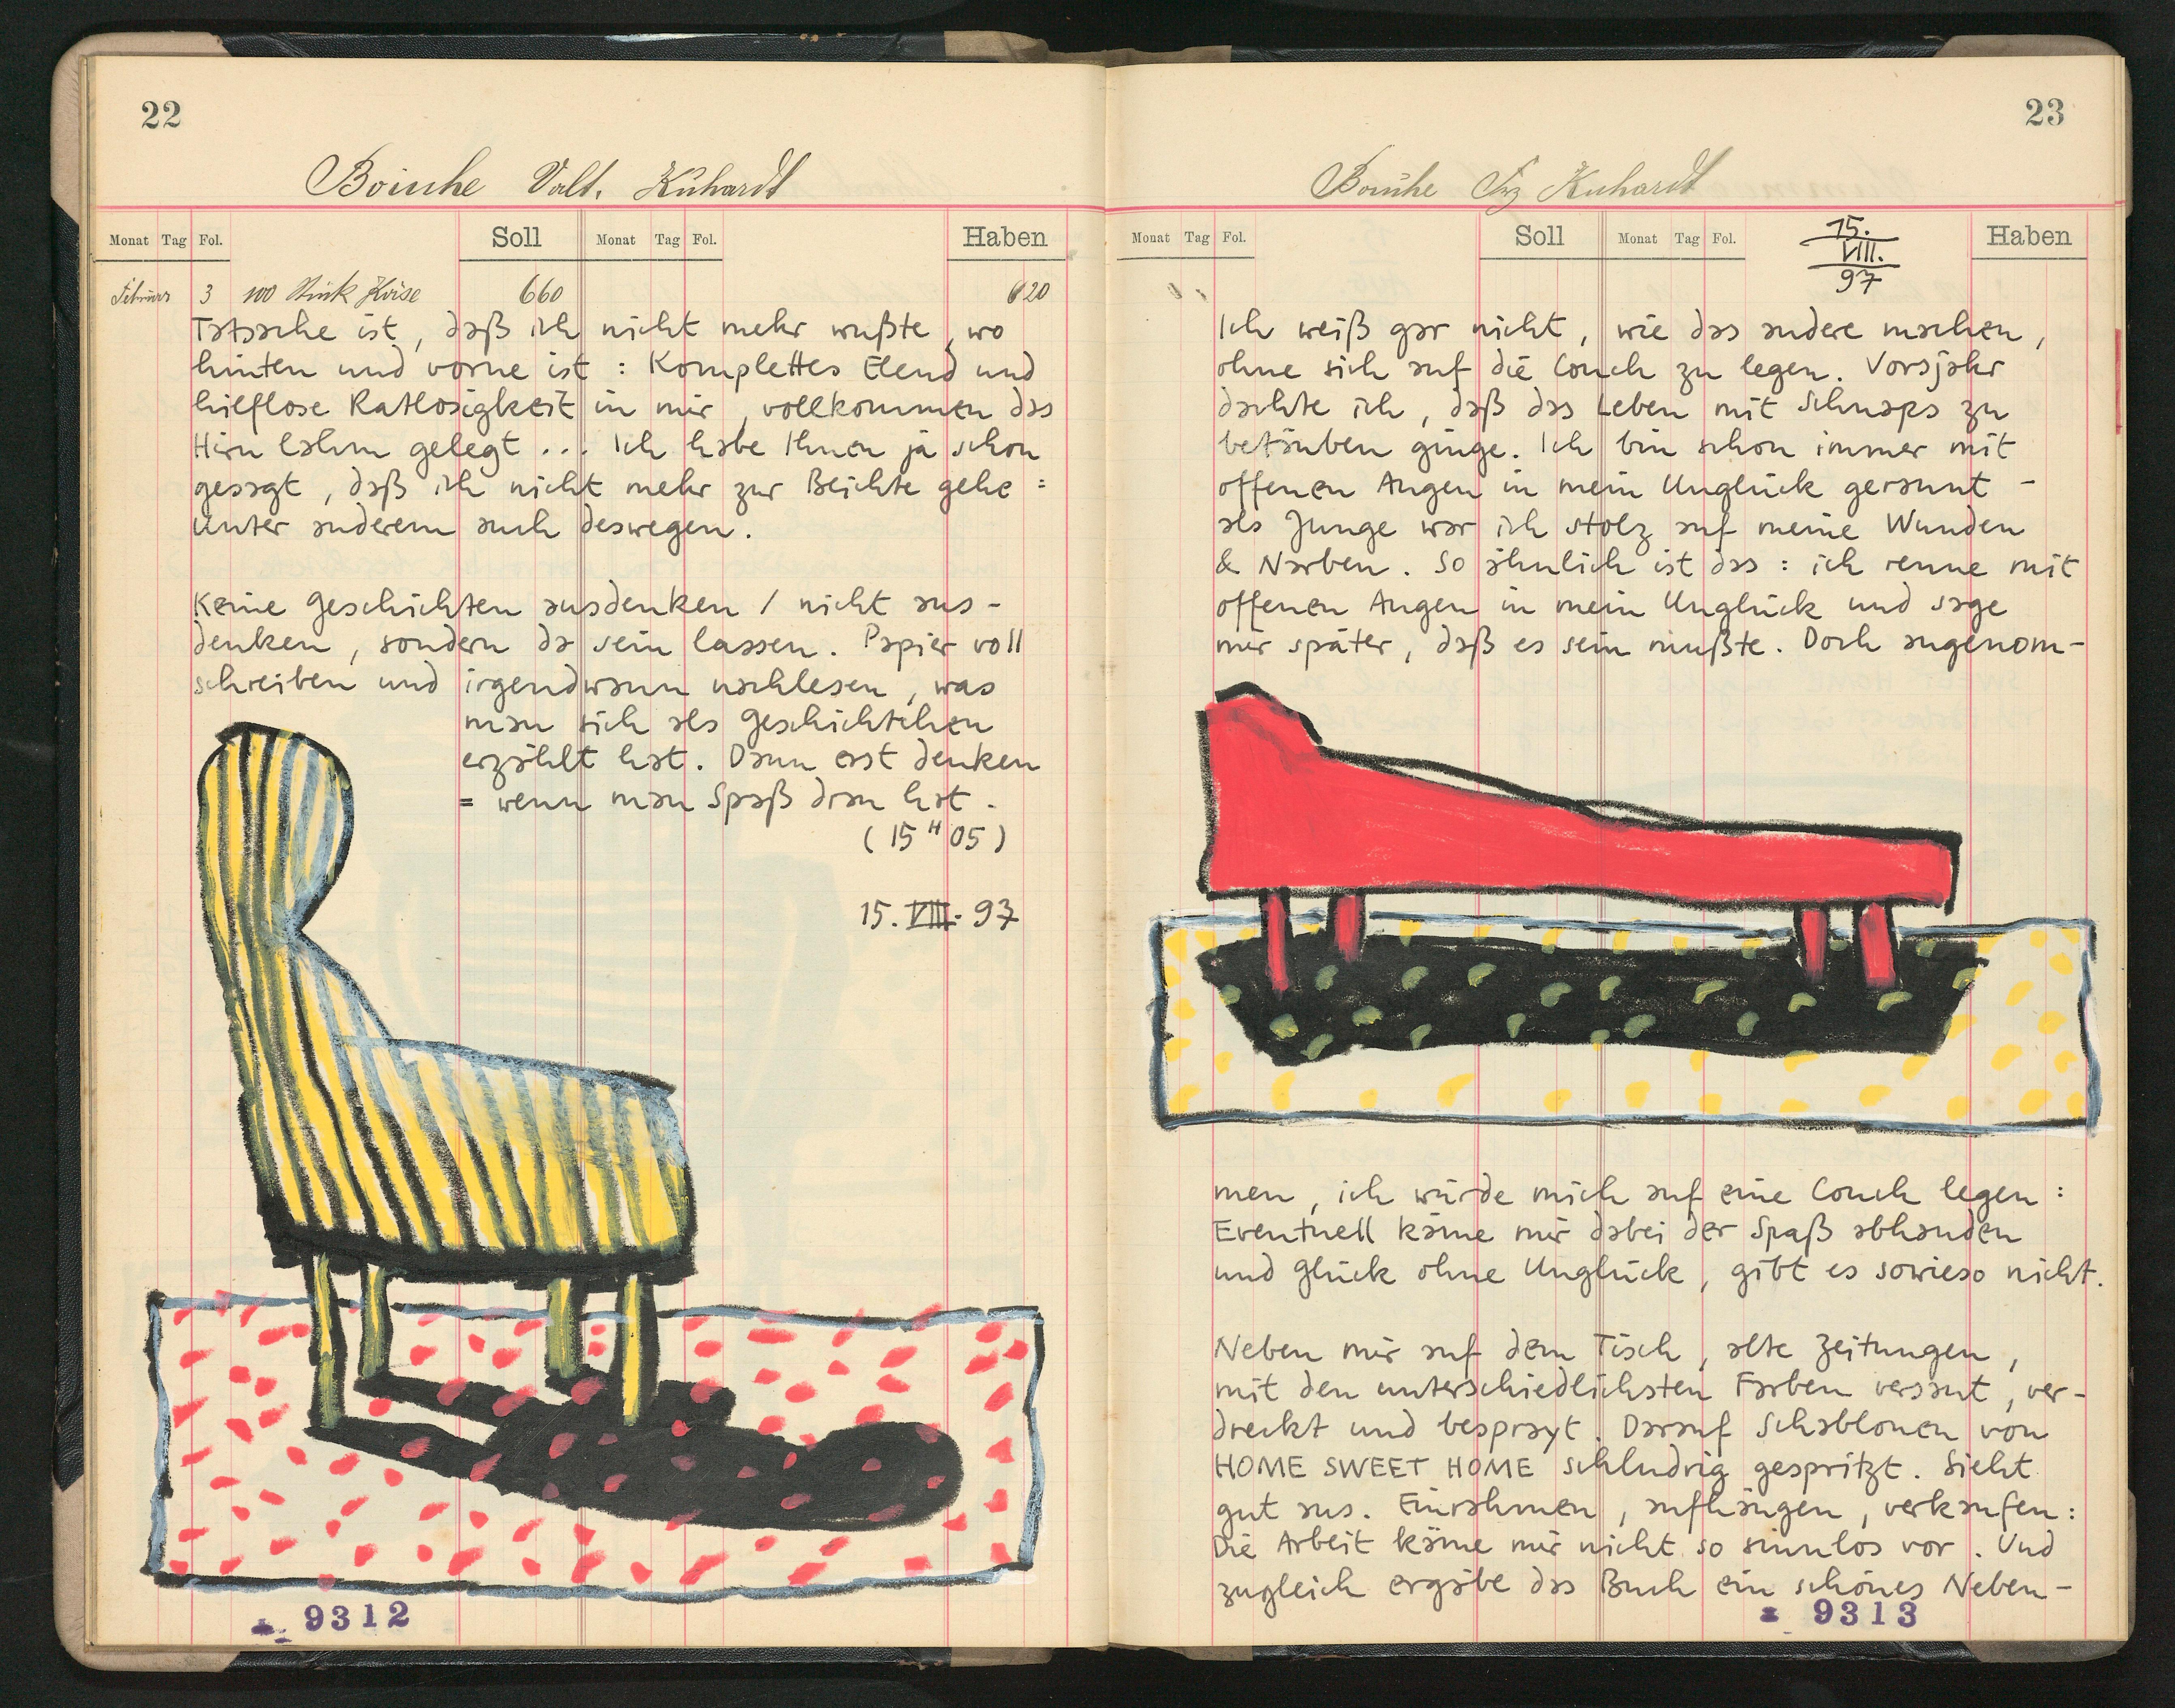 22
Boiuhe Valt. Kuhardt
Monat Tag Fol. Soll Monat Tag Fol. Haben
Februar 3 100 Stück Käse 660 620
Tatsache ist, daß ich nicht mehr wußte, wo
hinten und vorne ist : Komplettes Elend und
hilflose Ratlosigkeit in mir, vollkommen das
Hirn lahm gelegt ... Ich habe Ihnen ja schon
gesagt, daß ich nicht mehr zur Beichte gehe :
Unter anderem auch deswegen.
Keine Geschichten ausdenken / nicht aus-
denken, sondern da sein lassen. Papier voll
schreiben und irgendwann nachlesen, was
man sich als Geschichtchen
erzählt hat. Dann erst denken
= wenn man Spaß dran hat.
(15 H 05)
15. VIII. 97
9312
23
Kuhardt
Monat Tag Fol. Soll Monat Tag Fol. Haben
15.
VIII.
97
Ich weiß gar nicht, wie das andere machen,
ohne sich auf die Couch zu legen. Vorsjahr
dachte ich, daß das Leben mit Schnaps zu
betäuben ginge. Ich bin schon immer mit
offenen Augen in mein Unglück gerannt -
als Junge war ich stolz auf meine Wunden
& Narben. So ähnlich ist das : ich renne mit
offenen Augen in mein Unglück und sage
mir später, daß es sein mußte. Doch angenom-
men, ich würde mich auf eine Couch legen :
Eventuell käme mir dabei der Spaß abhanden
und Glück ohne Unglück, gibt es sowieso nicht.
Neben mir auf dem Tisch, alte Zeitungen,
mit den unterschiedlichsten Farben versaut, ver-
dreckt und besprayt. Darauf Schablonen von
HOME SWEET HOME schludrig gespritzt. Sieht
gut aus. Einrahmen, aufhängen, verkaufen :
Die Arbeit käme mir nicht so sinnlos vor. Und
zugleich ergäbe das Buch ein schönes Neben-
9313